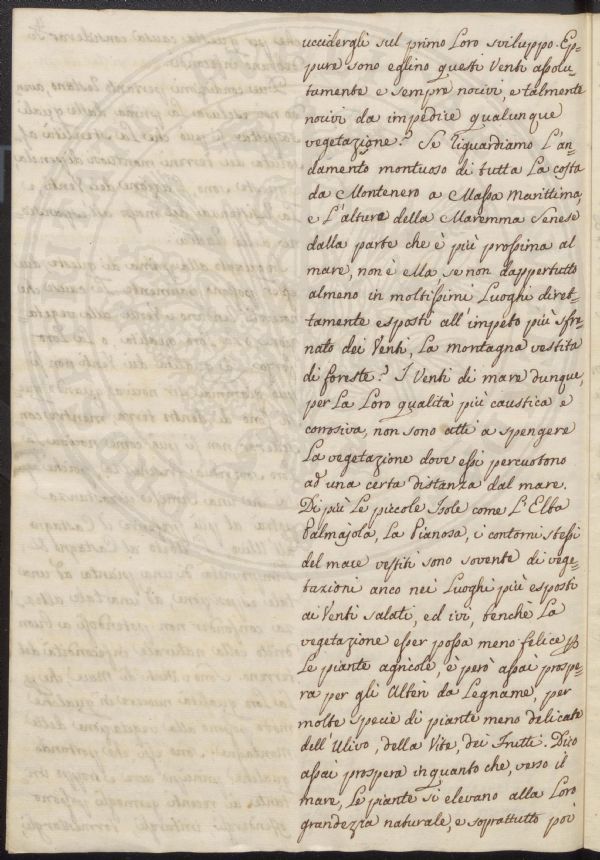 uccidergli sul primo Loro sviluppo. Ep=
pure sono eglino questi Venti assolu=
tamente e sempre nocivi, e talmente
nocivi da impedire qualunque
vegetazione? Se riguardiamo L'an=
damento montuoso di tutta La costa
da Montenero a Massa Marittima,
e L'alture della Maremma Senese
dalla parte che è più prossima al
mare, non è ella se non dappertutto
almeno in moltissimi Luoghi diret=
tamente esposti all'impeto più sfre=
nato dei Venti, La montagna vestita
di foreste? I Venti di mare dunque,
per La Loro qualità più caustica e
corrosiva, non sono atti a spengere
La vegetazione dove essi percuotono
ad una certa distanza dal mare.
Di più Le piccole Isole come L'Elba
Palmajola, La Pianosa, i contorni stessi
del mare vestiti sono sovente di vege=
tazioni anco nei Luoghi più esposti
ai Venti salati, ed ivi, benchè La
vegetazione esser possa meno felice p
Le piante agricole, è però assai prospe=
ra per gli Alberi da Legname, per
molte specie di piante meno delicate
dell'Ulivo, della Vite, dei Frutti. Dico
assai prospera inquanto che, verso il
mare, Le piante si elevano alla Loro
grandezza naturale, e soprattutto poi